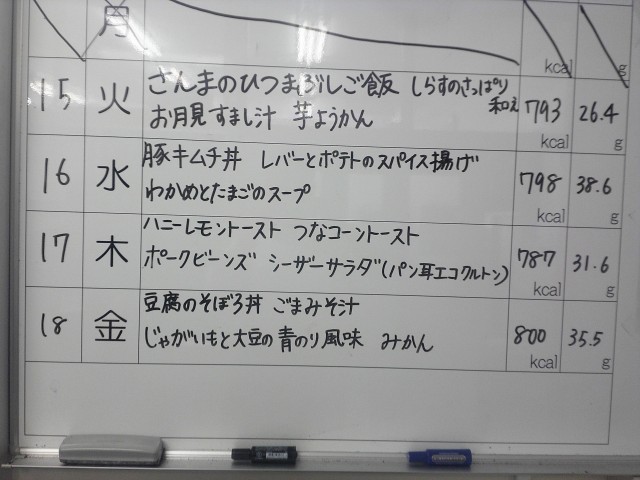 月 kcal g
15 火 さんまのひつまぶしご飯 しらすのさっぱり和え 793 kcal 26.4 g
お月見すまし汁 芋ようかん
16 水 豚キムチ丼 レバーとポテトのスパイス揚げ 798 kcal 38.6 g
わかめとたまごのスープ
17 木 ハニーレモントースト つなコーントースト 787 kcal 31.6 g
ポークビーンズ シーザーサラダ(パン耳エコクルトン)
18 金 豆腐のそぼろ丼 ごまみそ汁 800 kcal 35.5 g
じゃがいもと大豆の青のり風味 みかん